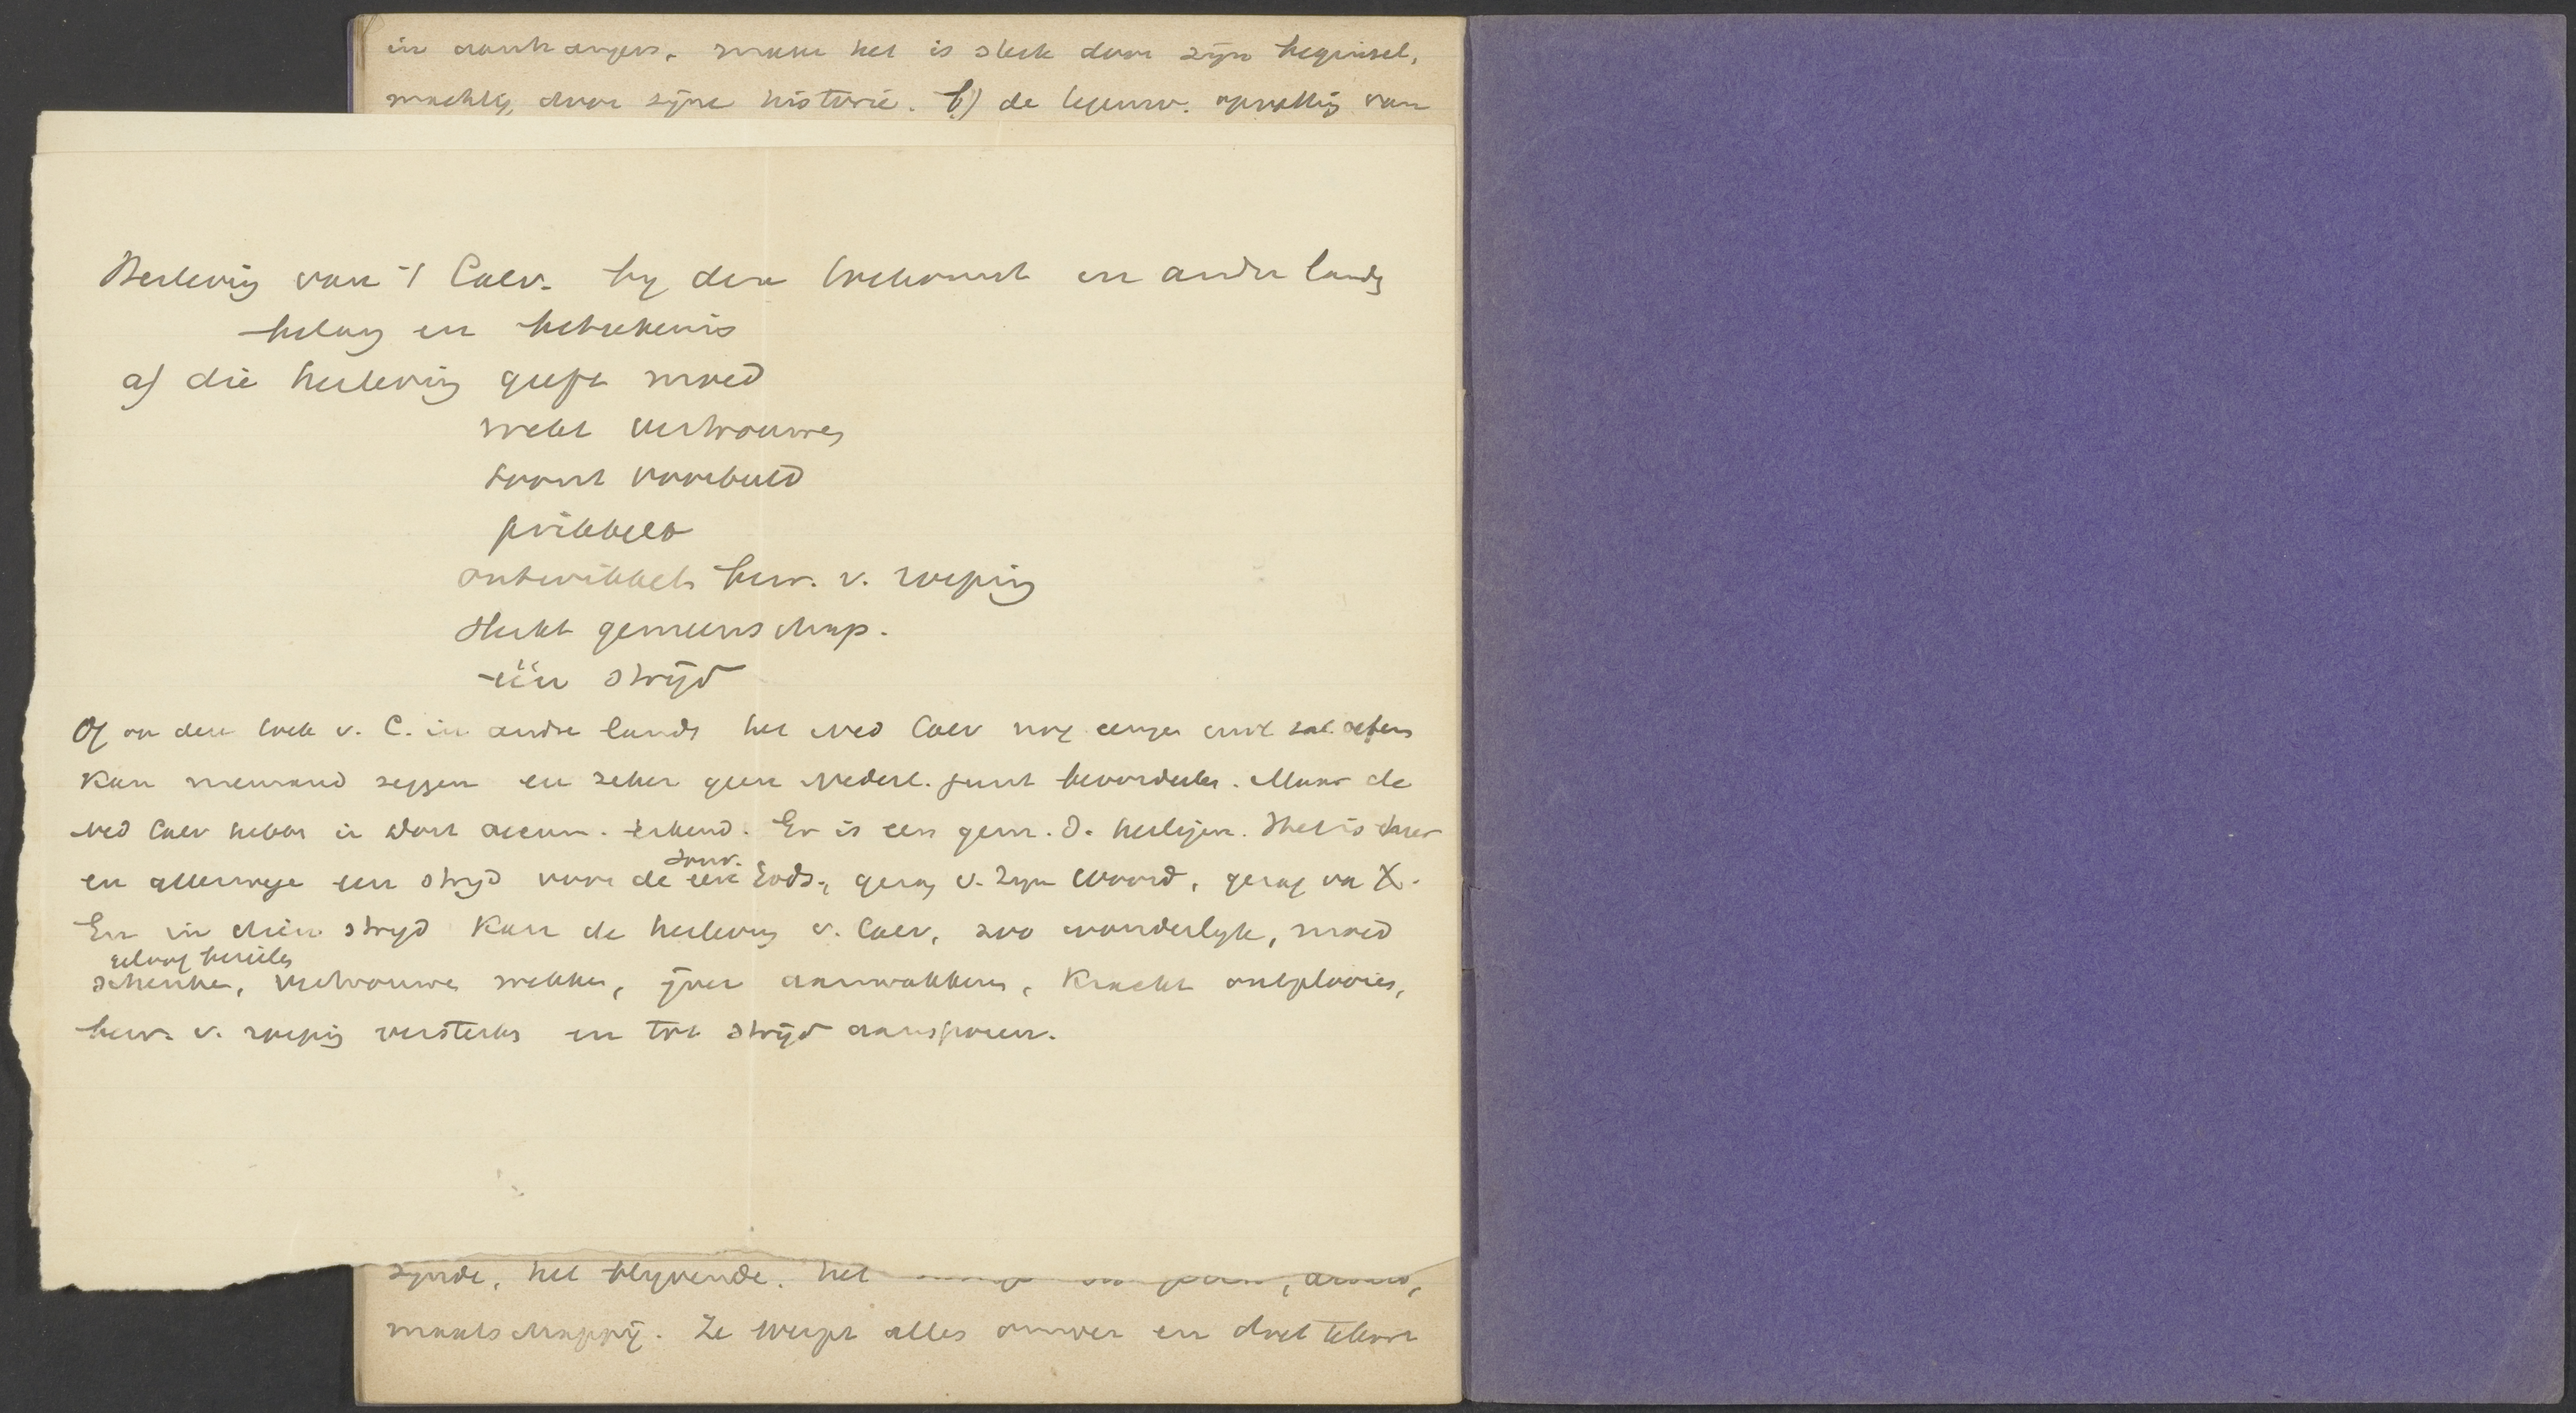 in aanhangers, maar het is sterk door zijn beginsel,
machtig door zijne historie. b) de tegenw. opvatting van
Herleving van 't Calv. by de toekomst en ander landen
belang en beteekenis
a) die herleving geeft moed
wekt vertrouwen
toont voorbeeld
prikkelt
ontwikkelt bew. v. roeping
sterkt gemeenschap.
één strijd
Of on den toek v. C. in andre landen het Ned Calv nog eenigen invl zal oefenen
Kan niemand zeggen en zeker geen Nederl. punt beoordeelen. Maar de
Ned Calv hebben in Dort oecum. erkend. Er is een gem. d. heiligen. Het is daar
en allerwege een strijd voor de eere Gods, gezag v. Zijn Woord, gezag van X.
souv.
En in dien strijd Kan de herleving v. Calv, zoo wonderlyk, moed
geloof bezielen
schenken, vertrouwen wekken, ijver aanwakkeren, Kracht ontplooien,
bew. v. roeping versterken en tot strijd aansporen.
zynde, het blyvende. het
maatschappij. Ze werpt alles omver en doet tekort